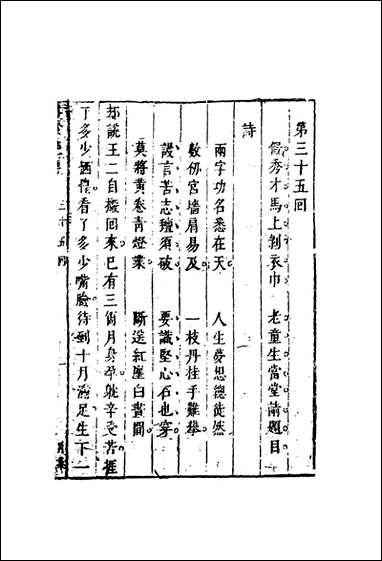 第三十五回
假秀才馬上剝衣巾　老童生當堂請題目
詩
兩字功名悉在天　人生夢想總徒然
數仞宮墻肩易及　一枝丹桂手難攀
謾言苦志氊須破　要識堅心石也穿
莫將黃卷青燈業　斷送紅崖白晝間
却說王二自搬回來已有三個月身孕躭辛受苦捱
了多少恓惶看了多少嘴臉待到十月滿足生下一
三十五回